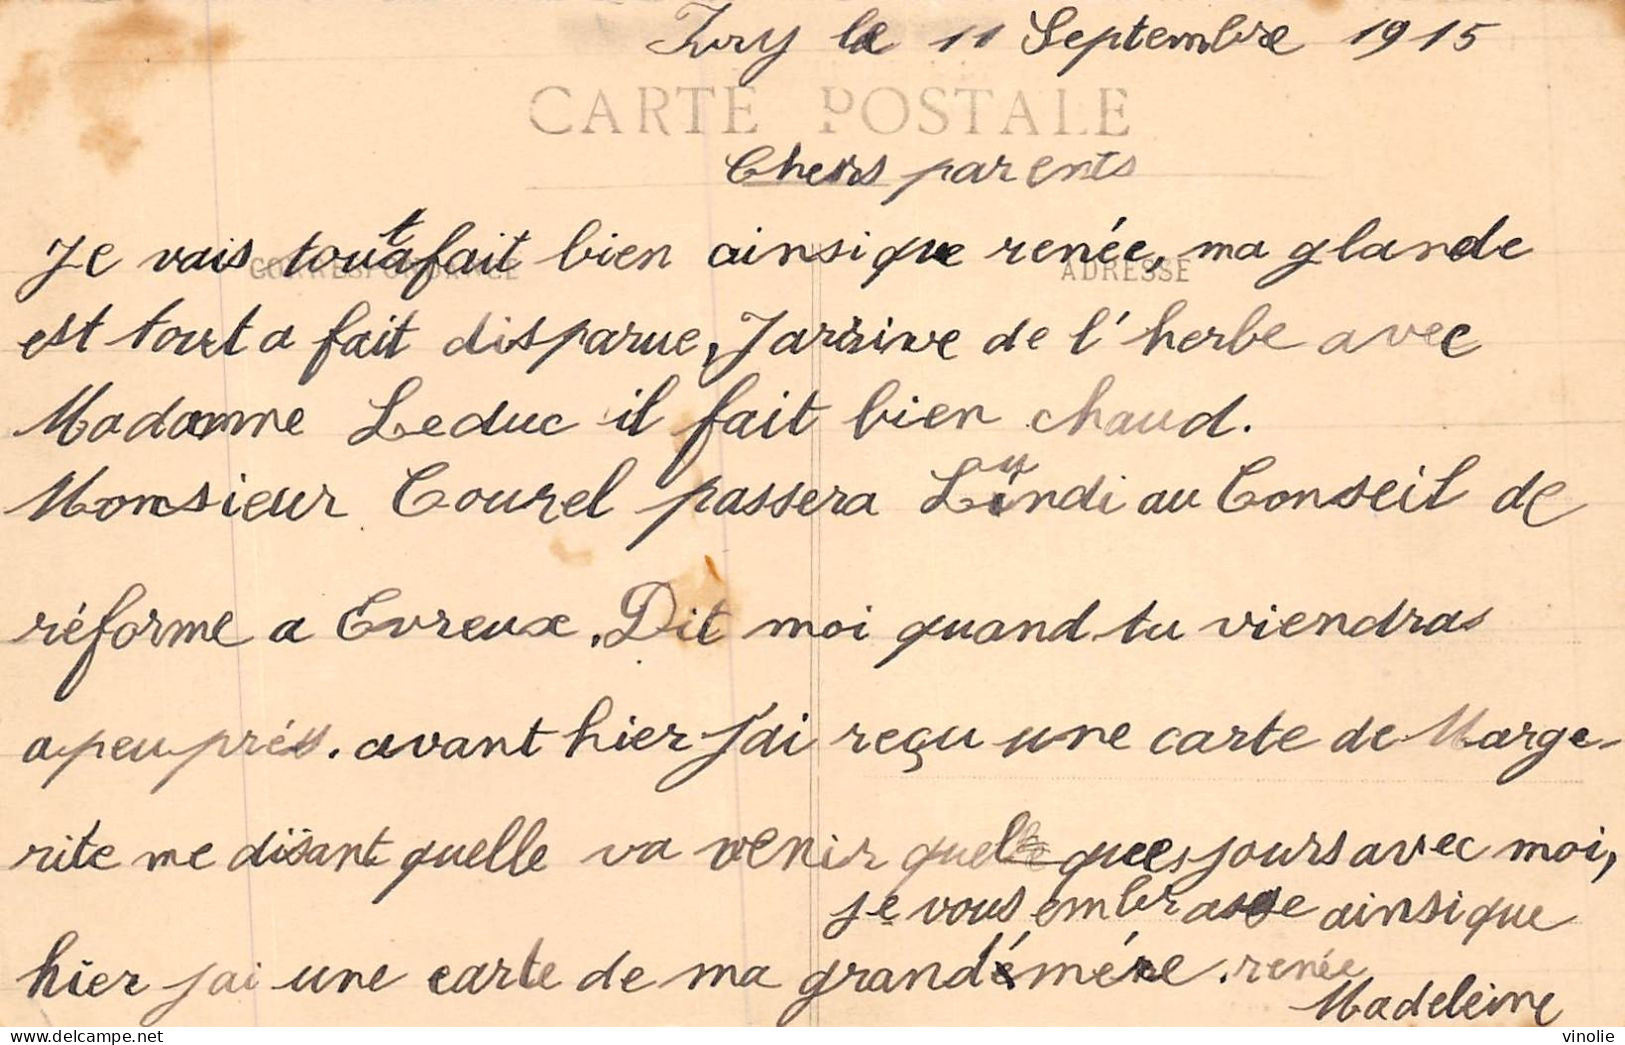 Ivry le 11 Septembre 1915
CARTE POSTALE
Chers parents
Je vais toutafait bien ainsique renée, ma glande
CORRESPONDANCE ADRESSE
est tout a fait disparue, Jarrive de l'herbe avec
Madame Leduc il fait bien chaud.
Monsieur Courel passera Lundi au Conseil de
réforme a Evreux. Dit moi quand tu viendras
apeuprés. avant hier j'ai reçu une carte de Marge-
rite me disant quelle va venir quelques jours avec moi,
je vous embrasse ainsique
hier jai une carte de ma grandmére. renée
Madeleine
vinolie